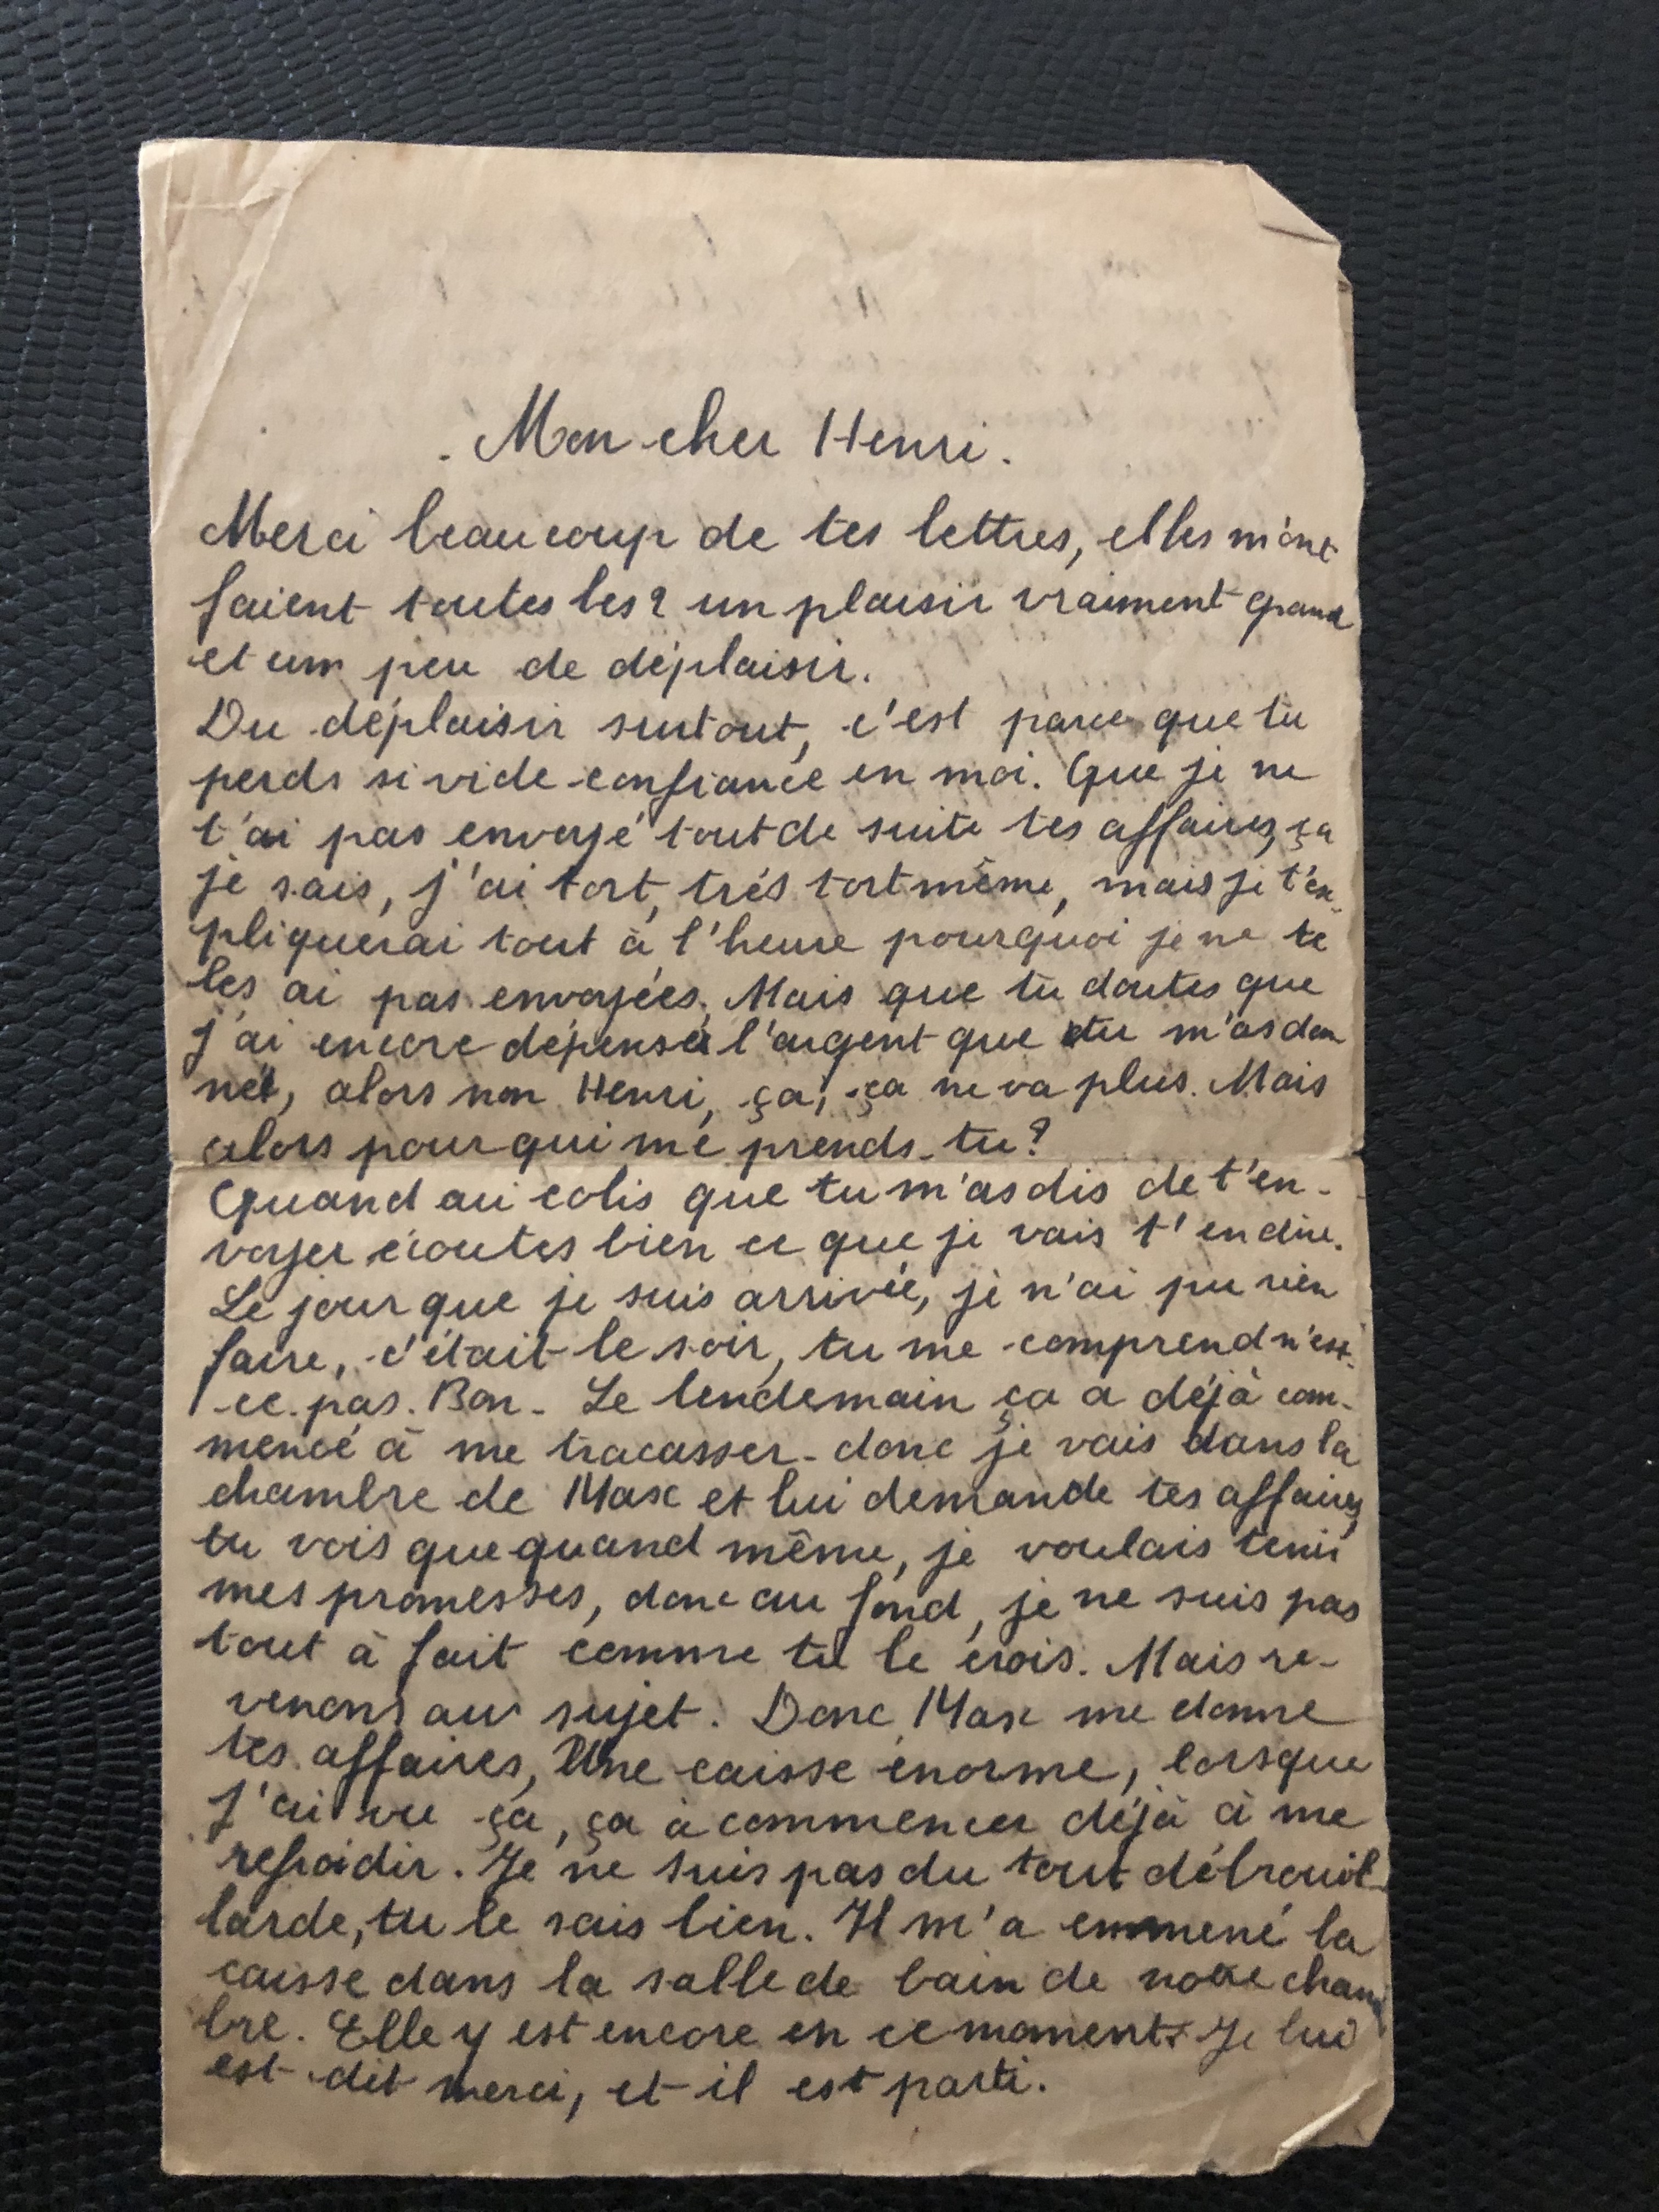 . Mon cher Henri.
Merci beaucoup de tes lettres, elles m'ont
faient toutes les 2 un plaisir vraiment grand
et um peu de déplaisir.
Du déplaisir surtout, c'est parce que tu
perds si vide confiance en moi. Que je ne
t'ai pas envoyé tout de suite tes affaires, ça
je sais, j'ai tort, trés tort même, mais je t'ex-
pliquerai tout à l'heure pourquoi je ne te
les ai pas envoyées. Mais que tu doutes que
j'ai encore dépensé l'argent que tu m'as don
né, alors non Henri, ça, ça ne va plus. Mais
alors pour qui me prends-tu?
Quand au colis que tu m'as dis de t'en-
voyer écoutes bien ce que je vais t'en dire.
Le jour que je suis arrivée, je n'ai pu rien
faire, c'était le soir, tu me comprend n'est-
-ce-pas. Bon- Le lendemain ça a déjà com-
mencé à me tracasser- donc je vais dans la
chambre de Max et lui demande tes affaires,
tu vois que quand même, je voulais tenir
mes promesses, donc au fond, je ne suis pas
tout à fait comme tu le crois. Mais re-
venons au sujet. Donc Max me donne
tes affaires, Une caisse énorme, lorsque
j'ai vu ça, ça à commencer déjà à me
refroidir. Je ne suis pas du tout débrouil-
larde, tu le sais bien. Il m'a emmené la
caisse dans la salle de bain de notre cham
bre. Elle y est encore en ce moment. Je lui
est dit merci, et il est parti.